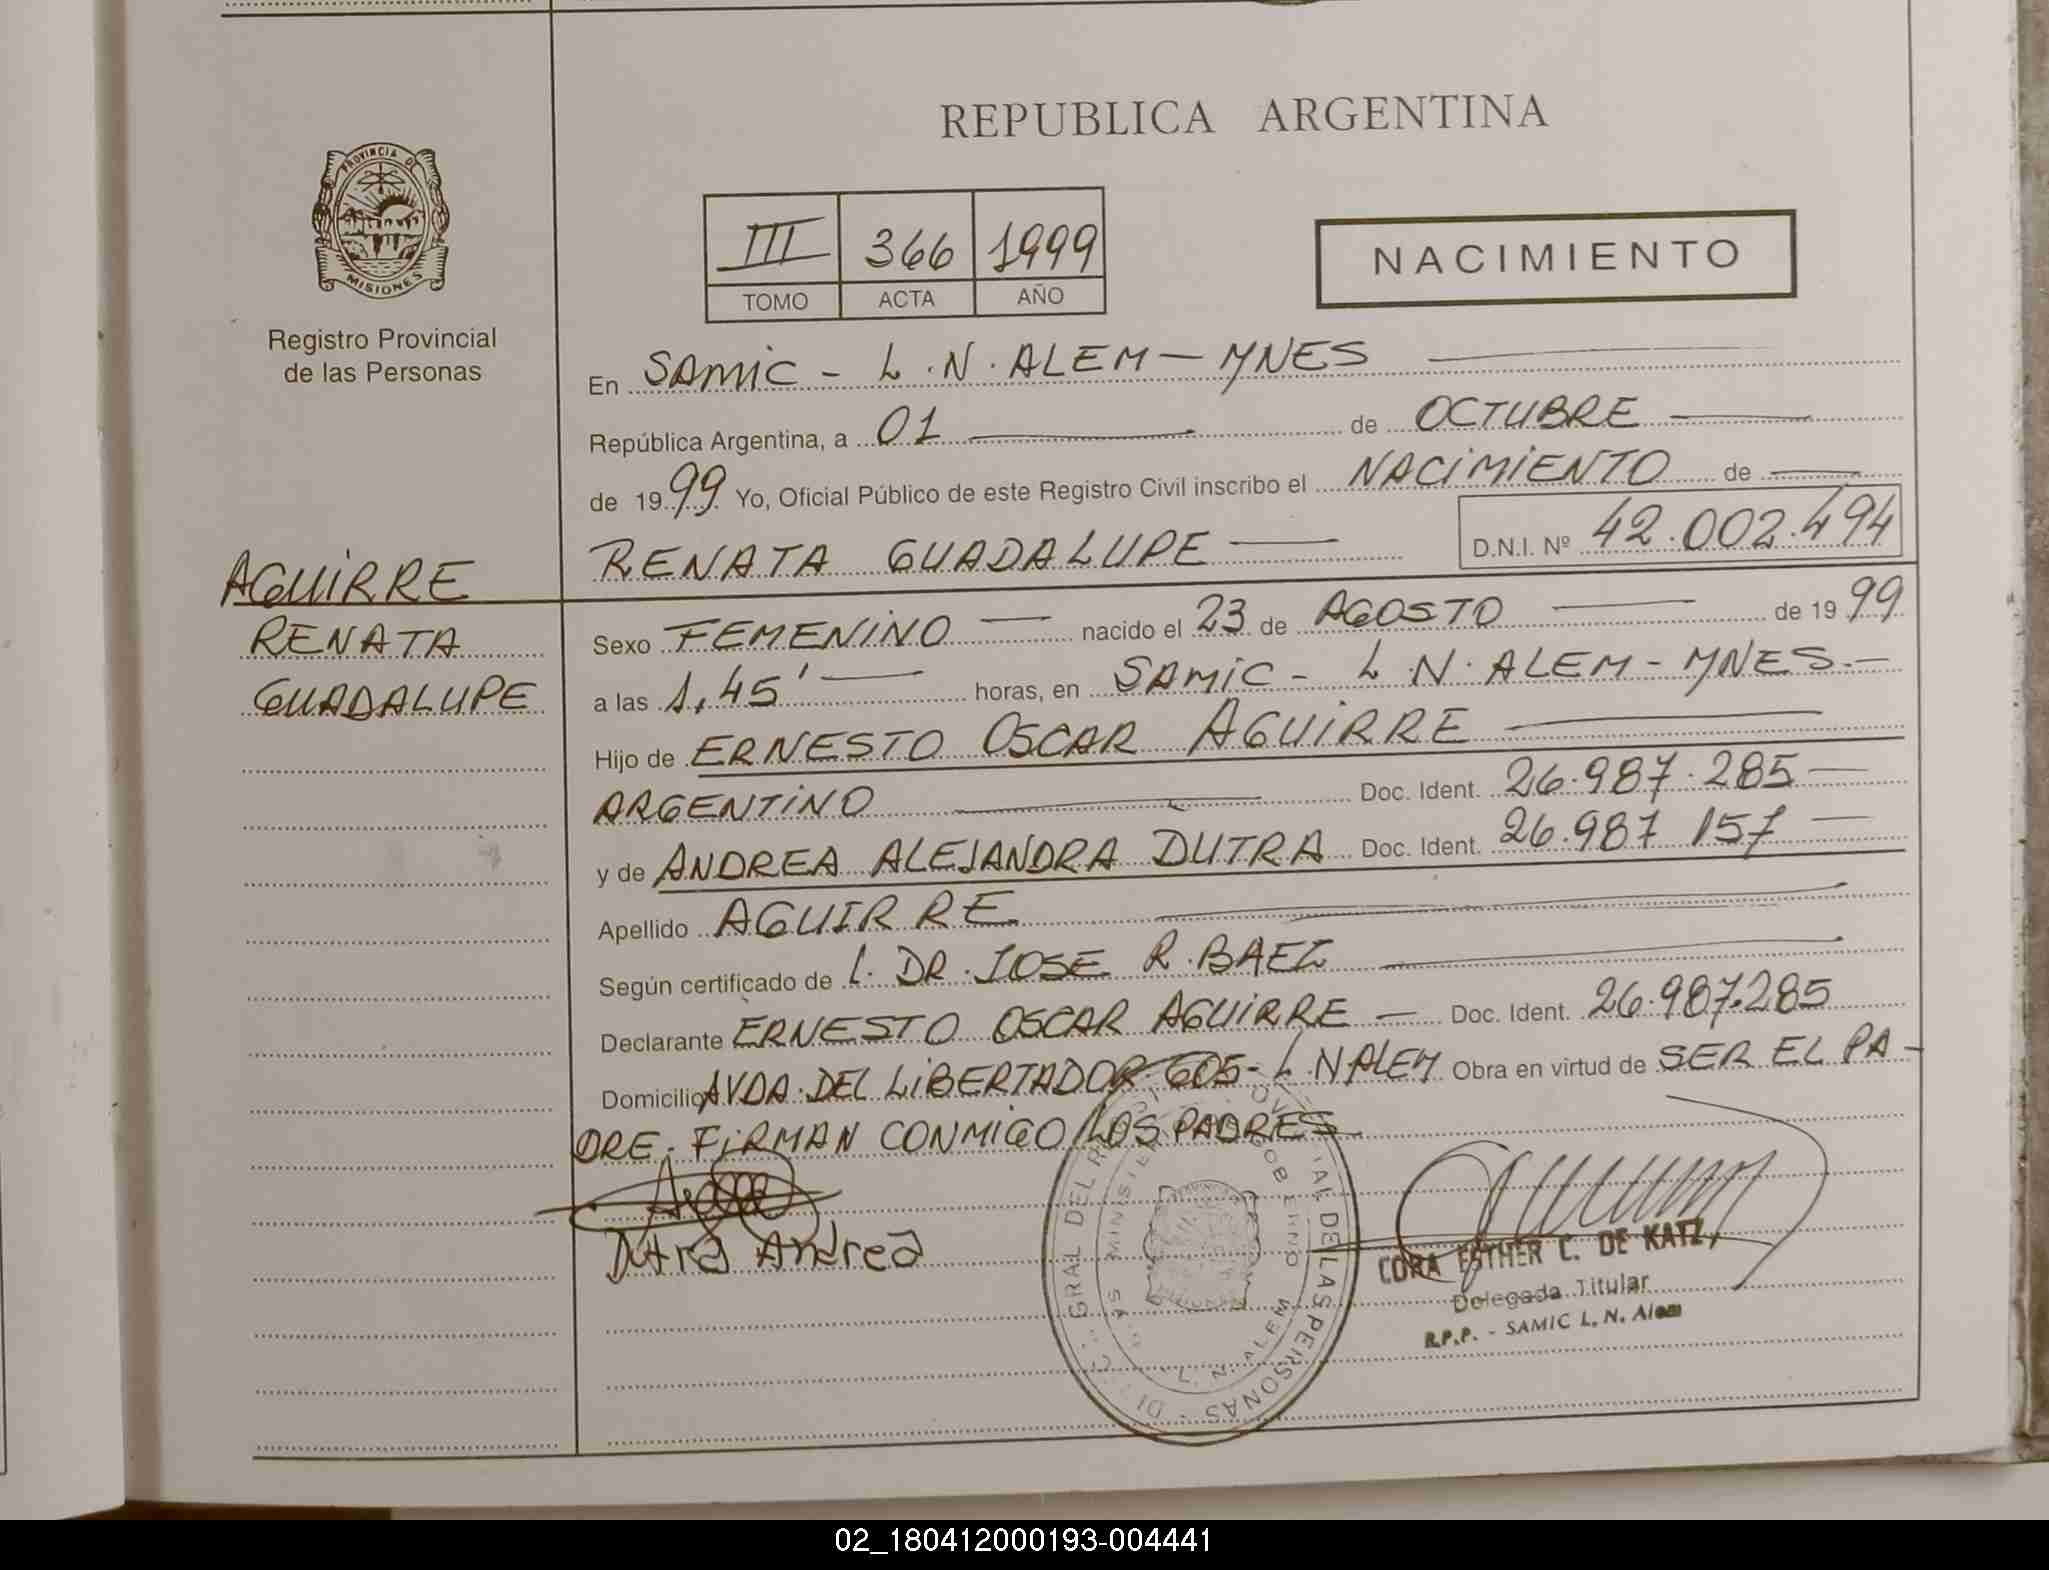 REPUBLICA ARGENTINA
PROVINCIA DE
MISIONES
Registro Provincial
de las Personas
III 366 1999
TOMO ACTA AÑO
NACIMIENTO
En SAMIC - L.N. ALEM - MNES
República Argentina, a 01 de OCTUBRE
de 1999 Yo, Oficial Público de este Registro Civil inscribo el NACIMIENTO de
RENATA GUADALUPE D.N.I. Nº 42.002.494
AGUIRRE
RENATA
GUADALUPE
Sexo FEMENINO nacido el 23 de AGOSTO de 1999
a las 1,45' horas, en SAMIC - L.N. ALEM - MNES.-
Hijo de ERNESTO OSCAR AGUIRRE
ARGENTINO Doc. Ident. 26.987.285
y de ANDREA ALEJANDRA DUTRA Doc. Ident. 26.987 157
Apellido AGUIRRE
Según certificado de L. DR. JOSE R. BAEZ
Declarante ERNESTO OSCAR AGUIRRE Doc. Ident. 26.987.285
Domicilio AVDA. DEL LIBERTADOR 605 - L.N ALEM Obra en virtud de SER EL PA-
DRE. FIRMAN CONMIGO LOS PADRES
Dutra Andrea
GRAL DEL DE LAS PERSONAS
L. N. ALEM
CORA ESTHER C. DE KATZ
Delegada Titular
R.P.P. - SAMIC L. N. Alem
02_180412000193-004441